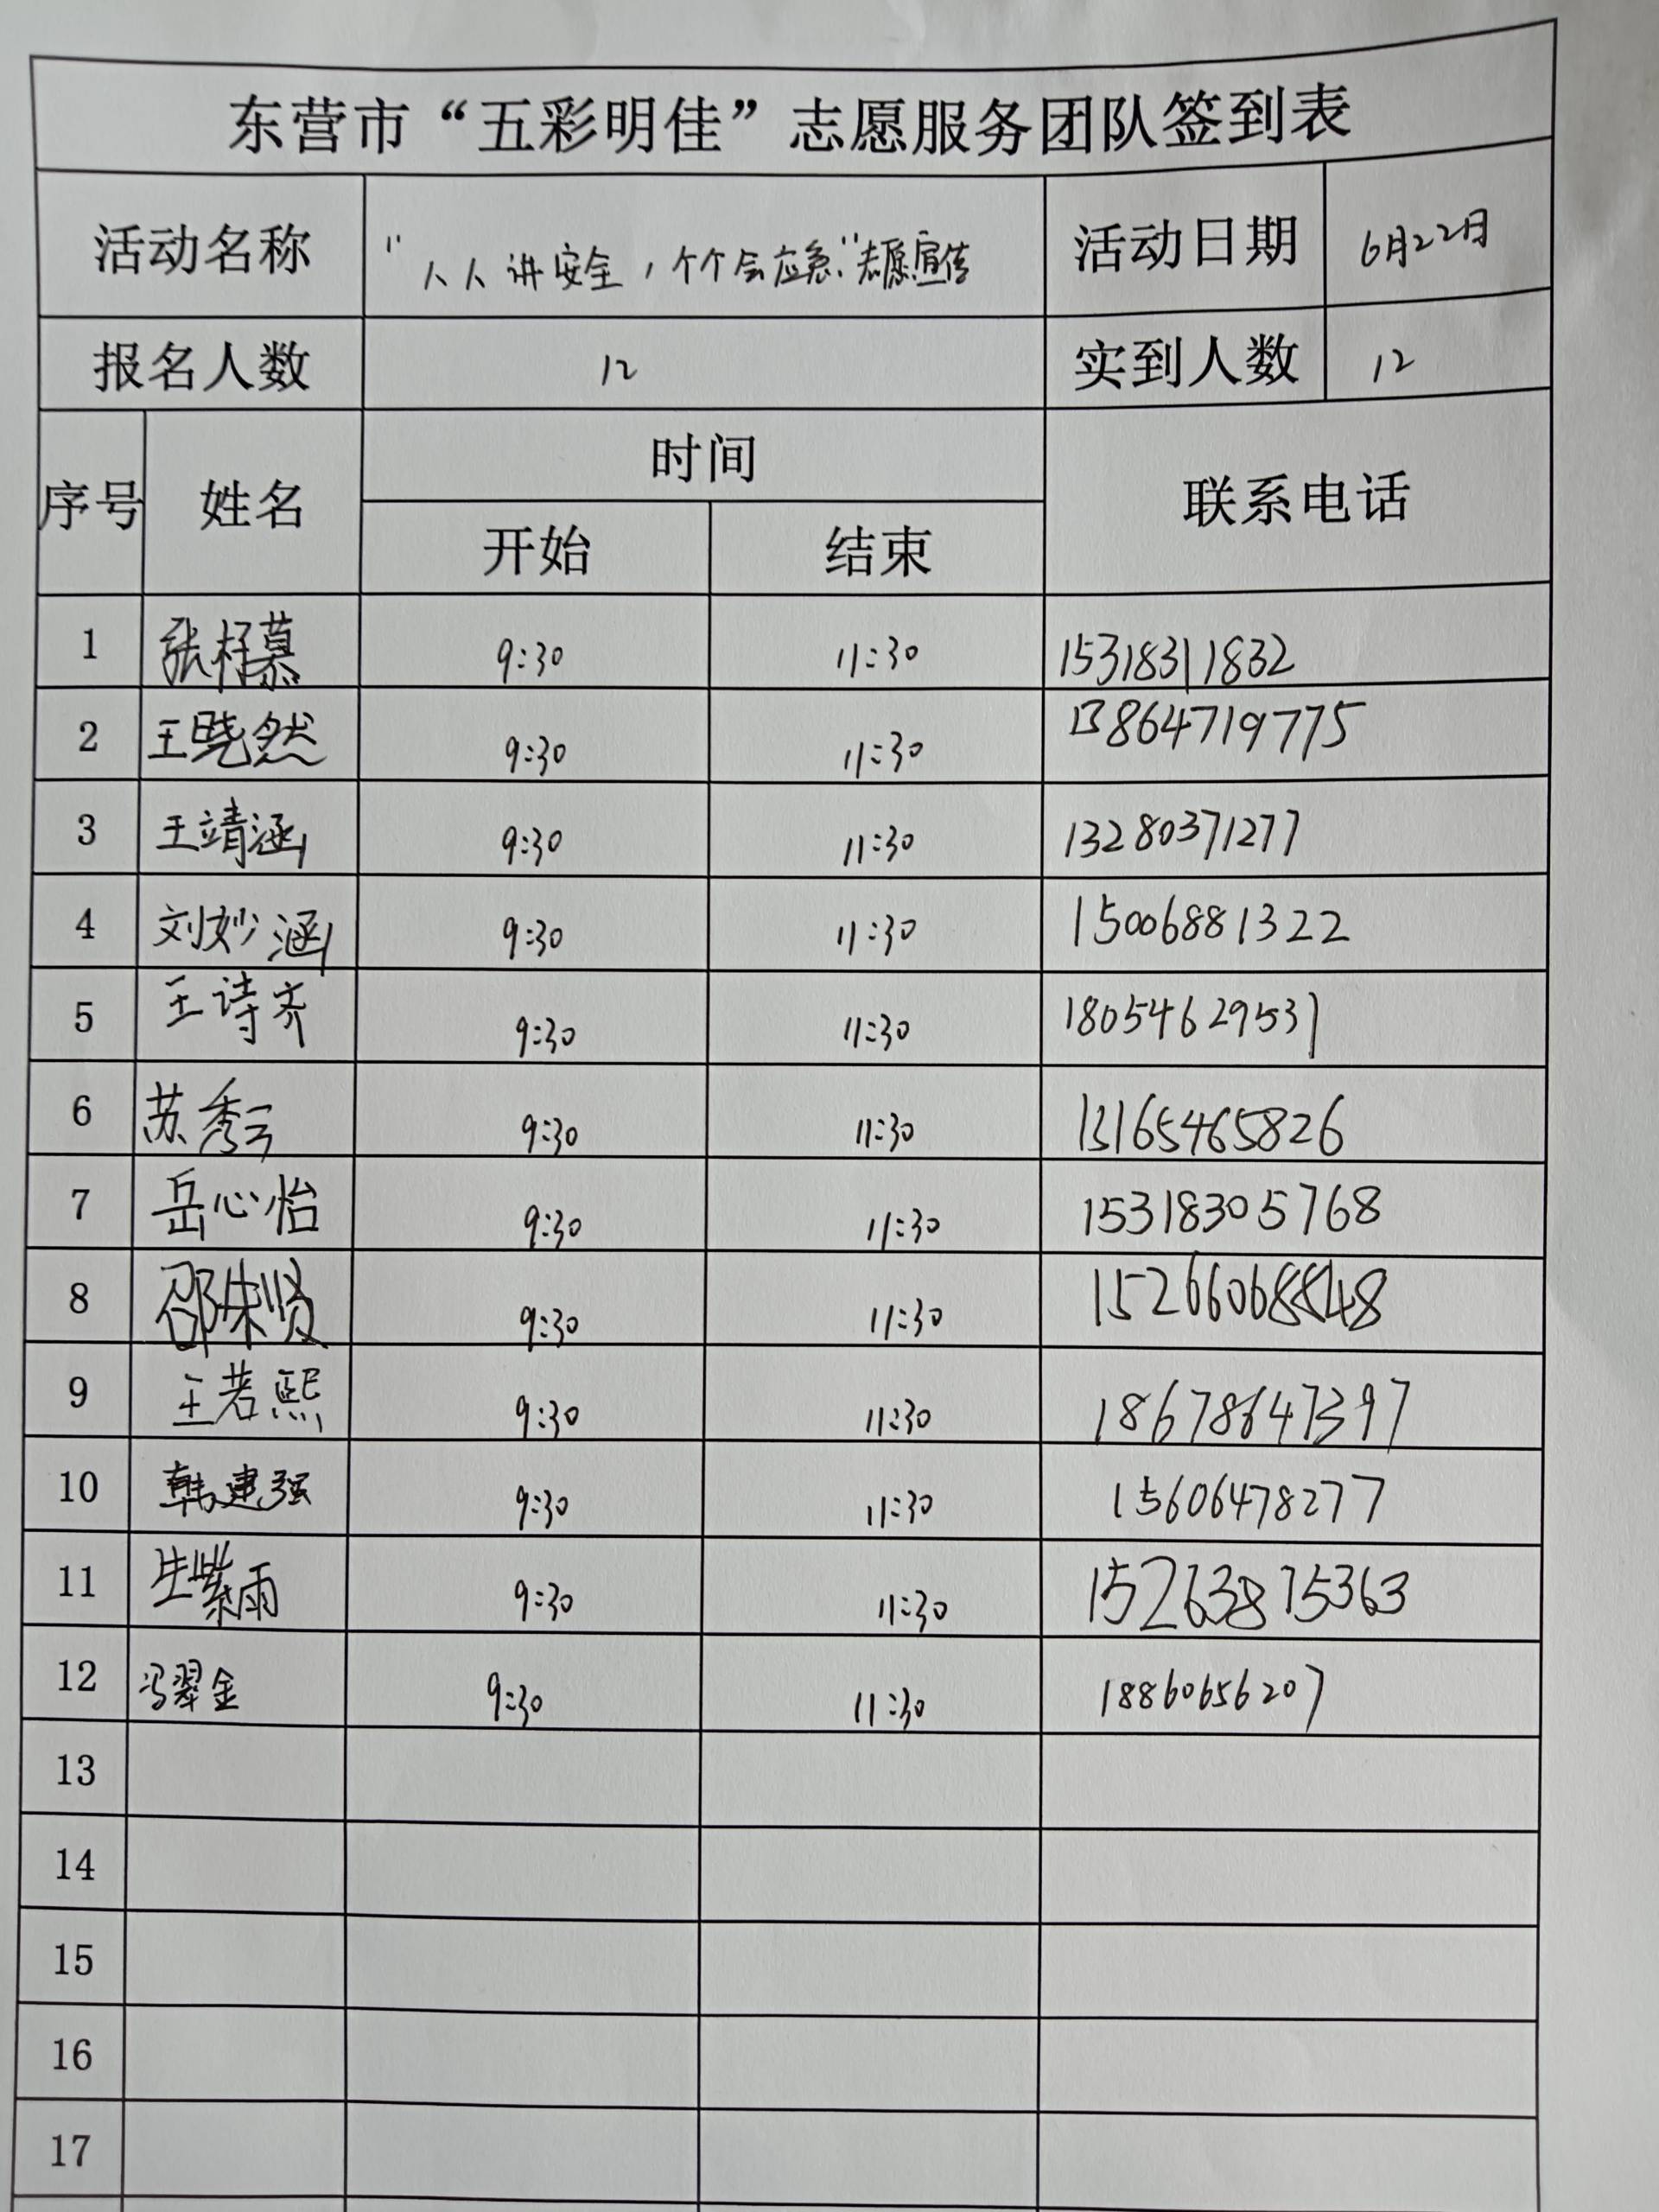 东营市“五彩明佳”志愿服务团队签到表
活动名称 “人人讲安全，个个会应急”志愿宣传 活动日期 6月22日
报名人数 12 实到人数 12
序号 姓名 时间 联系电话
开始 结束
1 张梓慕 9:30 11:30 15318311832
2 王晓然 9:30 11:30 13864719775
3 王靖涵 9:30 11:30 13280371277
4 刘妙涵 9:30 11:30 15006881322
5 王诗齐 9:30 11:30 18054629531
6 苏秀云 9:30 11:30 13165465826
7 岳心怡 9:30 11:30 15318305768
8 邵朱贤 9:30 11:30 15266068848
9 王若熙 9:30 11:30 18678647397
10 韩建强 9:30 11:30 15606478277
11 生紫雨 9:30 11:30 15263875363
12 冯翠金 9:30 11:30 18860656207
13
14
15
16
17